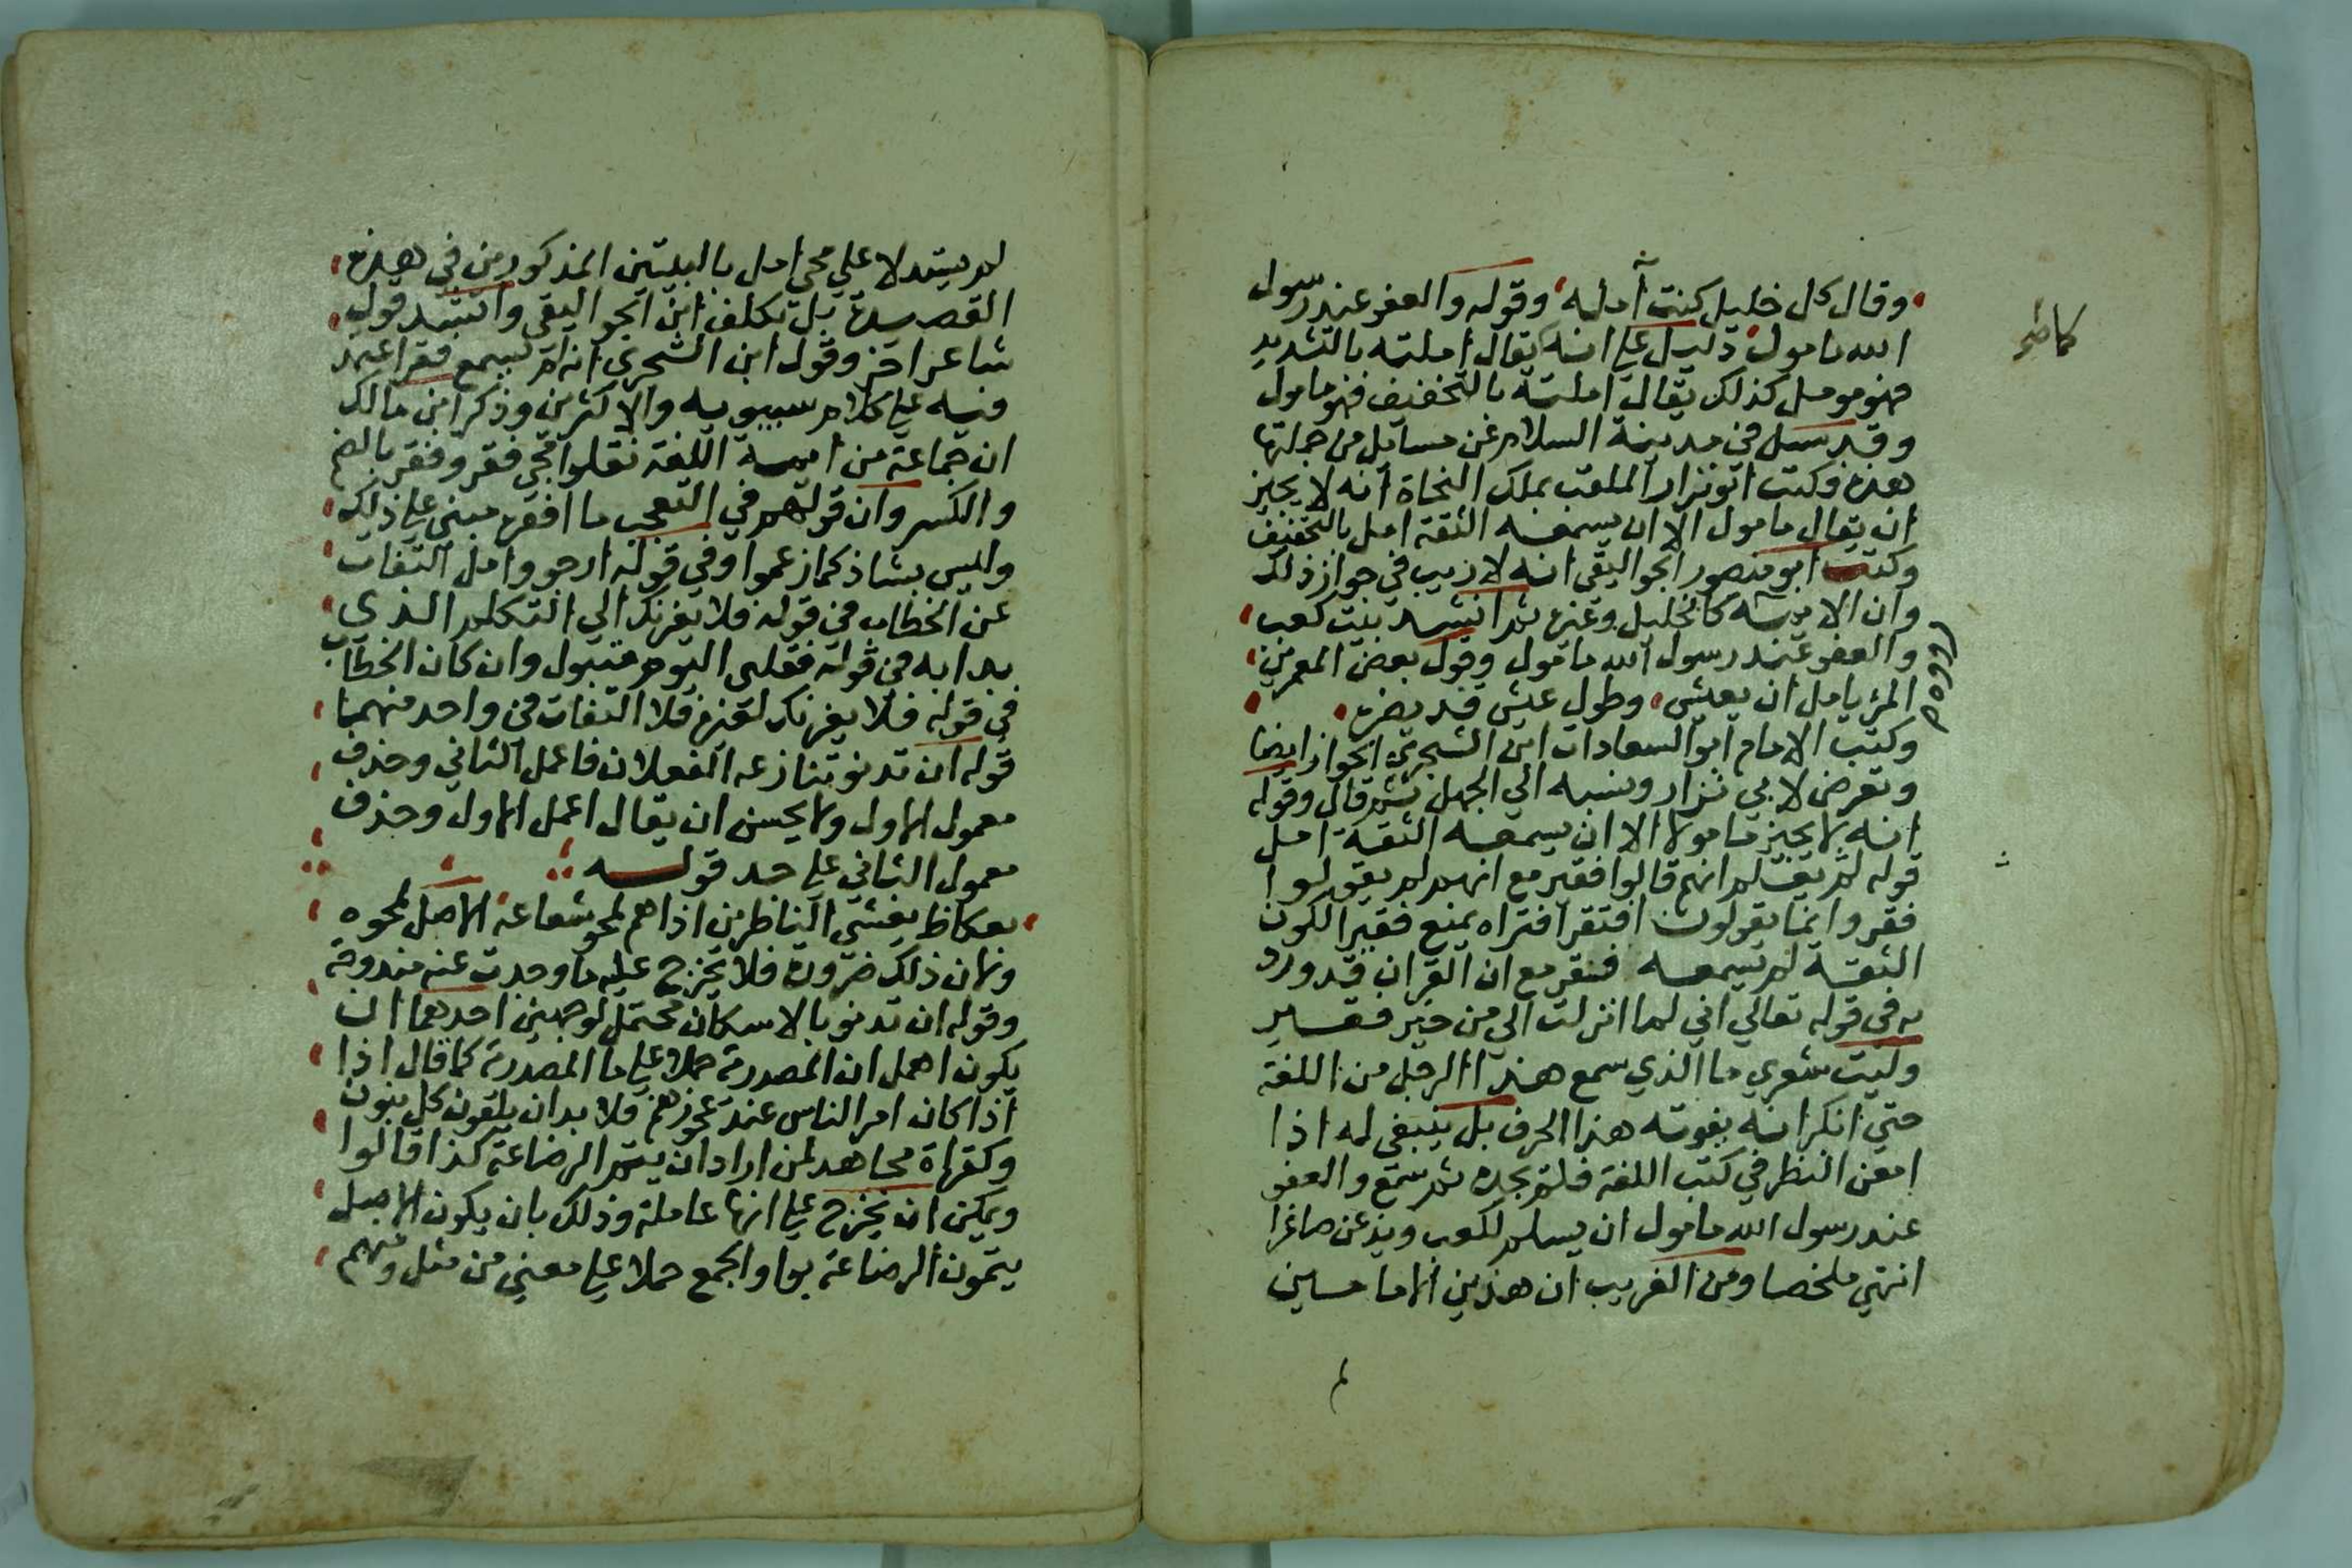 وقال كل خليل كنت آمله وقوله والعفو عند رسول
الله مامول دليل علي انه يقال املته بالتشديد
فهو مومل كذلك يقال املته بالتخفيف فهو مامول
وقد سيل في مدينة السلام عن مسايل من جملتها
هذه وكتب ابو نزار الملقب بملك النحاة انه لا يجيز
ان يقال مامول الا ان يسمعه الثقة امل بالتخفيف
وكتب ابو منصور الجواليقي انه لا ريب في جواز ذلك
وان الايمة كالخليل وغيره ثم انشد بيت كعب
والعفو عند رسول الله مامول وقول بعض المعمرين
المرؤ يامل ان يعيش وطول عيش قد يضره
وكتب الامام ابو السعادات ابن الشجري الجواز ايضا
وتعرض لابي نزار ونسبه الي الجهل ثم قال وقوله
انه لا يجيز مامولا الا ان يسمعه الثقة امل
قوله لم يعلم انهم قالوا فقير مع انهم لم يقولوا
فقر وانما يقولون افتقر افتراه يمنع فقيرا لكون
الثقة لم يسمعه فقر مع ان القران قد ورد
به في قوله تعالي اني لما انزلت الي من خير فقير
وليت شعري ما الذي سمع هذا الرجل من اللغة
حتي انكر انه يفوته هذا الحرف بل ينبغي له اذا
امعن النظر في كتب اللغة فلم يجده ثم سمع والعفو
عند رسول الله مامول ان يسلم لكعب ويذعن صاغرا
انتهي ملخصا ومن الغريب ان هذين الامامين
لم يستدلا علي مجي امل بالبيتين المذكورين في هذه
القصيدة بل تكلف ابن الجواليقي وانشد قول
شاعر اخر وقول ابن الشجري انه لم يسمع فقر اعتمد
فيه علي كلام سيبويه والاكثرين وذكر ابن مالك
ان جماعة من ايمة اللغة نقلوا مجي فقر وفقر بالضم
والكسر وان قولهم في التعجب ما افقره مبني علي ذلك
وليس بشاذ كما زعموا وفي قوله ارجو وامل التفات
عن الخطاب في قوله فلا يغرنك الي التكلم الذي
بدا به في قوله فقلبي اليوم متبول وان كان الخطاب
في قوله فلا يغرنك لغيره فلا التفات في واحد منهما
قوله ان تدنو تنازعه الفعلان فاعمل الثاني وحذف
معمول الاول ولا يحسن ان يقال اعمل الاول وحذف
معمول الثاني علي حد قوله
بعكاظ يغشي الناظرين اذا هم لمحو شعاعه الاصل لمحوه
ولان ذلك ضرورة فلا يخرج عليه ما وجدت عنه مندوحة
وقوله ان تدنو بالاسكان محتمل لوجهين احدهما ان
يكون اهمل ان المصدرية حملا علي ما المصدرية كما قال اذا
اذا كان امر الناس عند عجوزهم فلا بد ان يلقون كل يبون
وكقراة مجاهد لمن اراد ان يتم الرضاعة كذا قالوا
ويمكن ان يخرج علي انها عاملة وذلك بان يكون الاصل
يتمون الرضاعة بواو الجمع حملا علي معني من مثل ومنهم